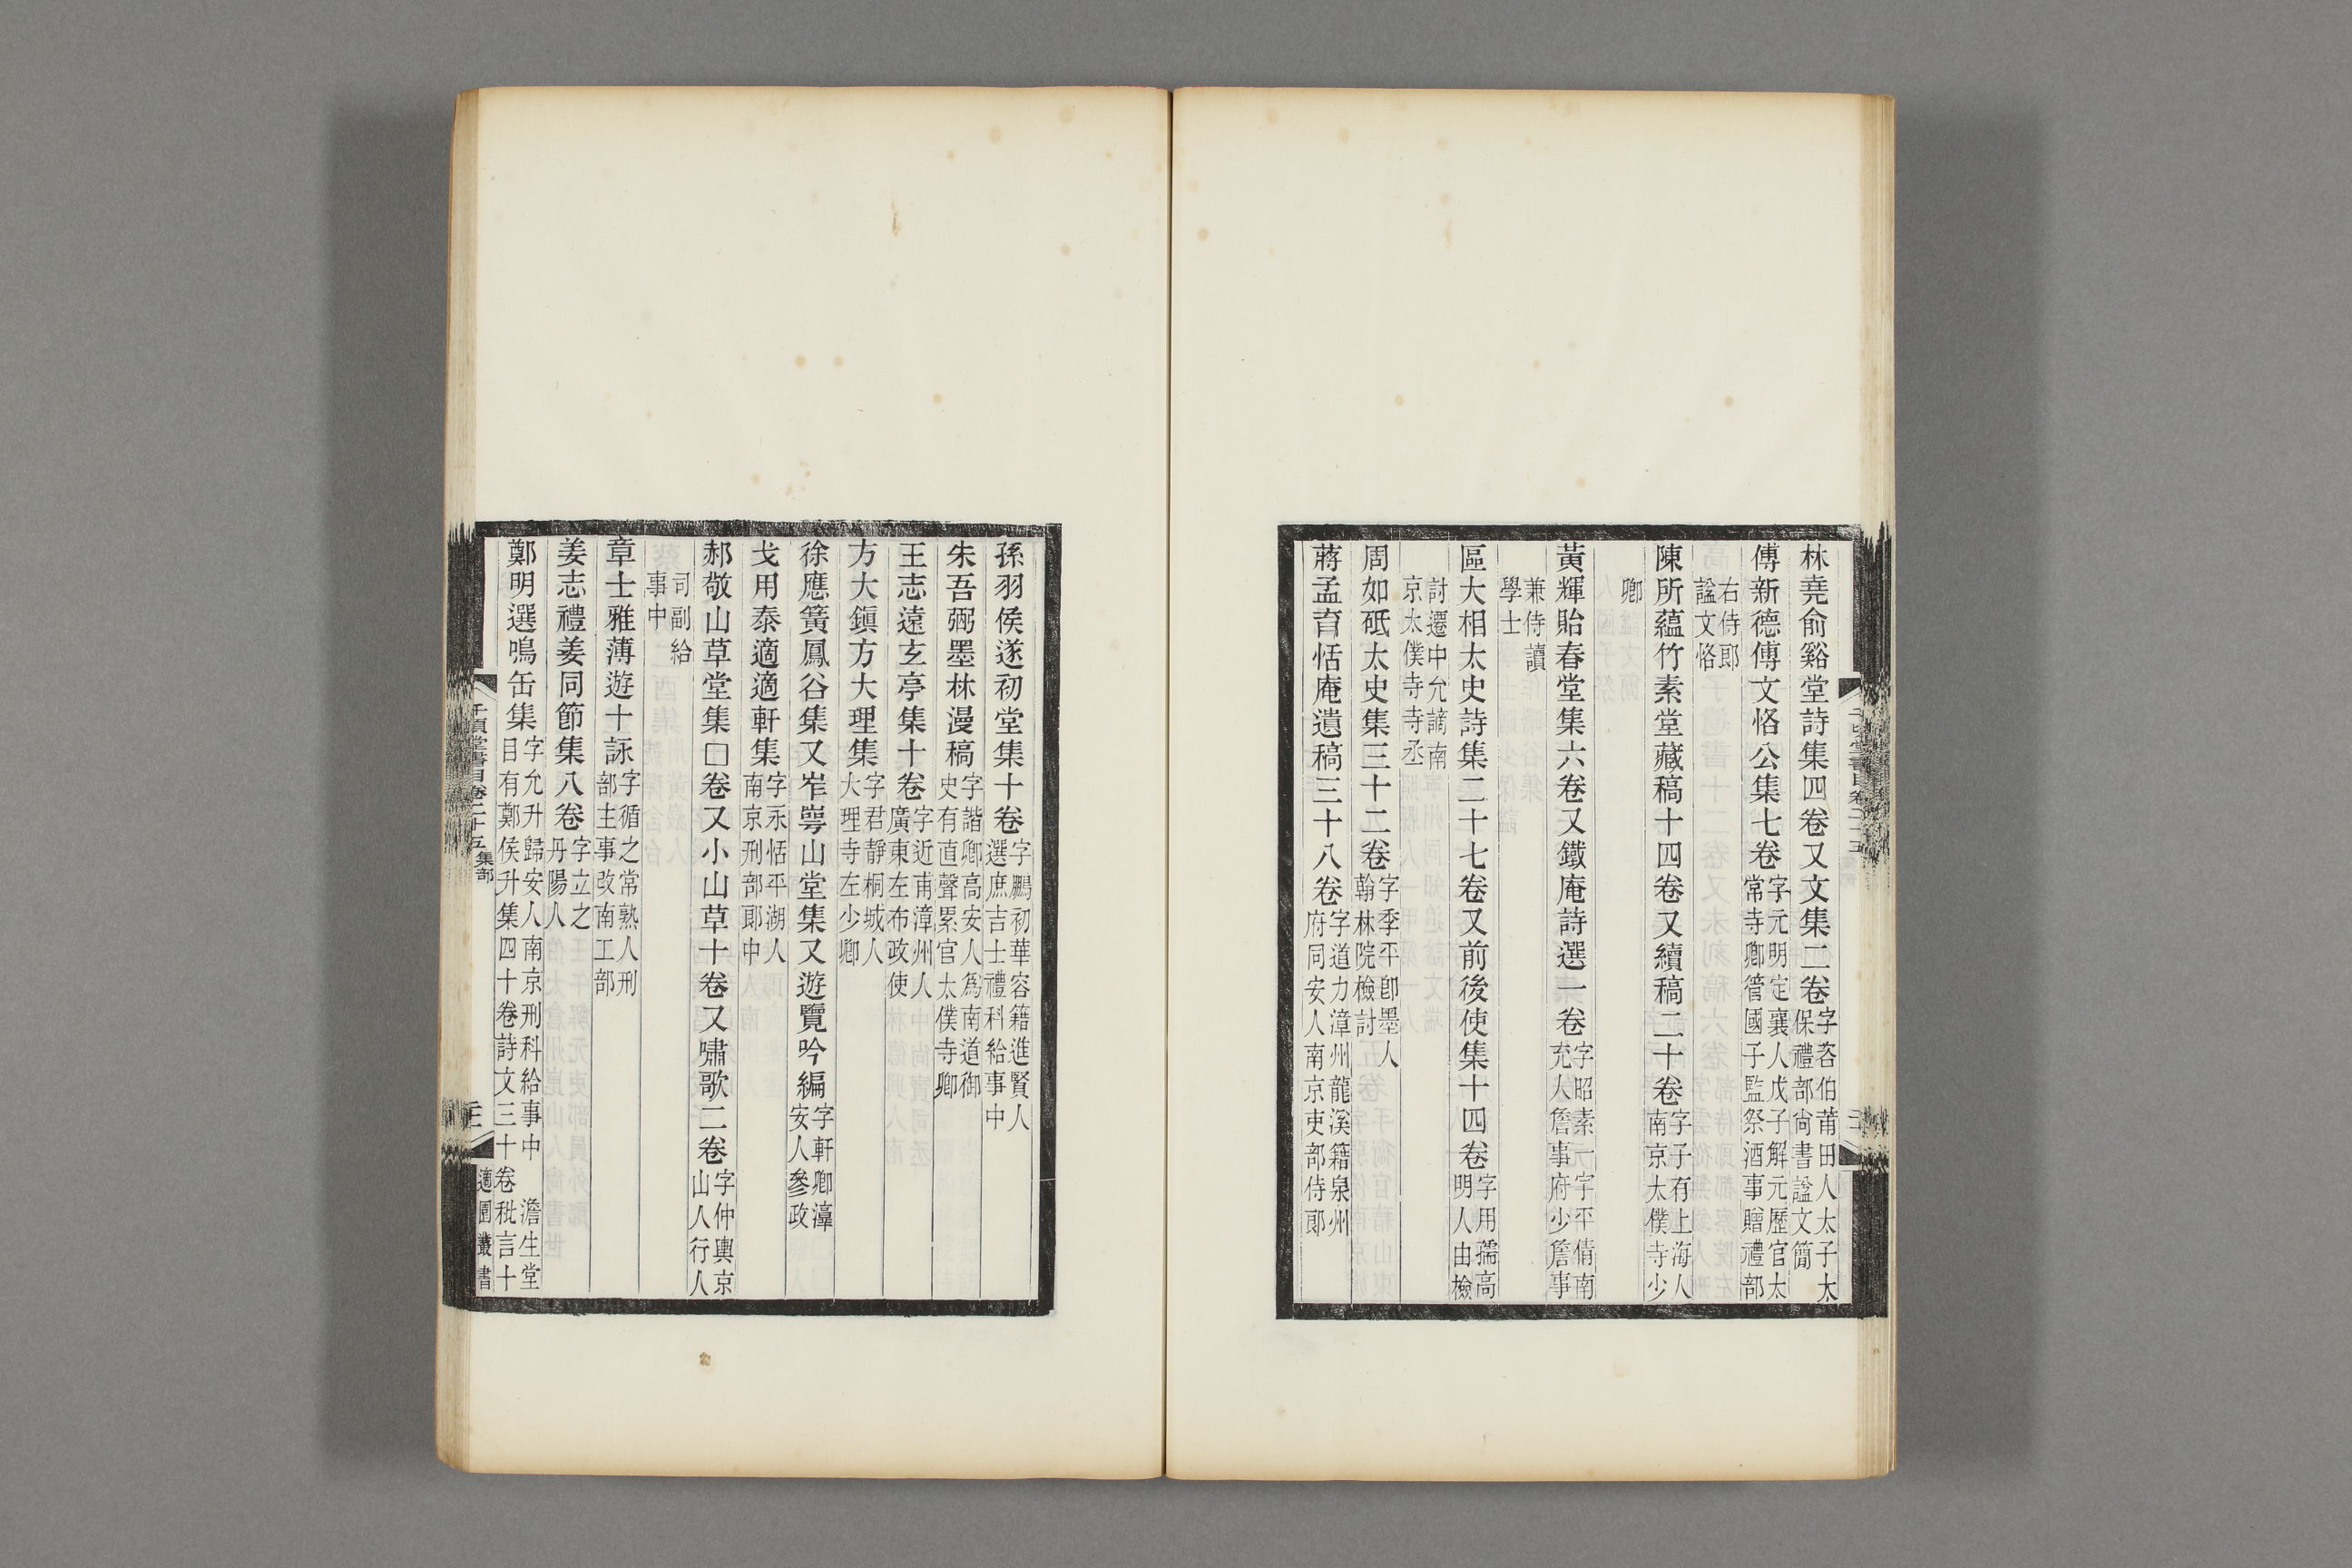 林堯俞谿堂詩集四卷又文集二卷字咨伯莆田人太子太保禮部尚書諡文簡
傅新德傅文恪公集七卷字元明定襄人戊子解元歷官太常寺卿管國子監祭酒事贈禮部
右侍郎諡文恪
陳所蘊竹素堂藏稿十四卷又續稿二十卷字子有上海人南京太僕寺少
卿
黃輝貽春堂集六卷又鐵庵詩選一卷字昭素一字平倩南充人詹事府少詹事
兼侍讀學士
區大相太史詩集二十七卷又前後使集十四卷字用孺高明人由檢
討遷中允謫南京太僕寺寺丞
周如砥太史集三十二卷字季平卽墨人翰林院檢討
蔣孟育恬庵遺稿三十八卷字道力漳州龍溪籍泉州府同安人南京吏部侍郎
孫羽侯遂初堂集十卷字鵬初華容籍進賢人選庶吉士禮科給事中
朱吾弼墨林漫稿字諧卿高安人爲南道御史有直聲累官太僕寺卿
王志遠玄亭集十卷字近甫漳州人廣東左布政使
方大鎭方大理集字君靜桐城人大理寺左少卿
徐應簧鳳谷集又岝崿山堂集又遊覽吟編字軒卿漳安人參政
戈用泰適適軒集字永恬平湖人南京刑部郎中
郝敬山草堂集□卷又小山草十卷又嘯歌二卷字仲輿京山人行人
司副給事中
章士雅薄遊十詠字循之常熟人刑部主事改南工部
姜志禮姜同節集八卷字立之丹陽人
鄭明選鳴缶集字允升歸安人南京刑科給事中 澹生堂目有鄭侯升集四十卷詩文三十卷秕言十
千頃堂書目卷二十五 集部
適園叢書